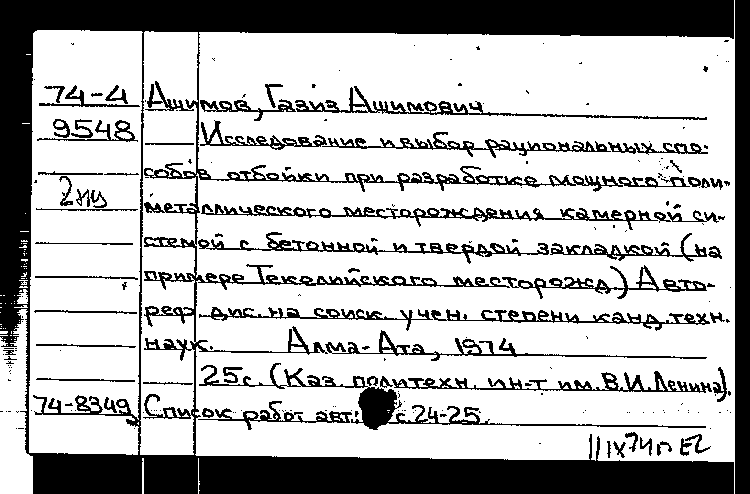 74-4 Ашимов, Газиз Ашимович
9548 Исследование и выбор рациональных спо-
собов отбойки при разработке мощного поли-
2 металлического месторождения камерной си-
стемой с бетонной и твердой закладкой (на
примере Текелийского месторожд.) Авто-
реф. дис. на соиск. учен. степени канд. техн.
наук. Алма-Ата, 1974
25 с. (Каз. политехн. ин-т им. В.И. Ленина).
74-8349 Список работ авт.: с. 24-25.